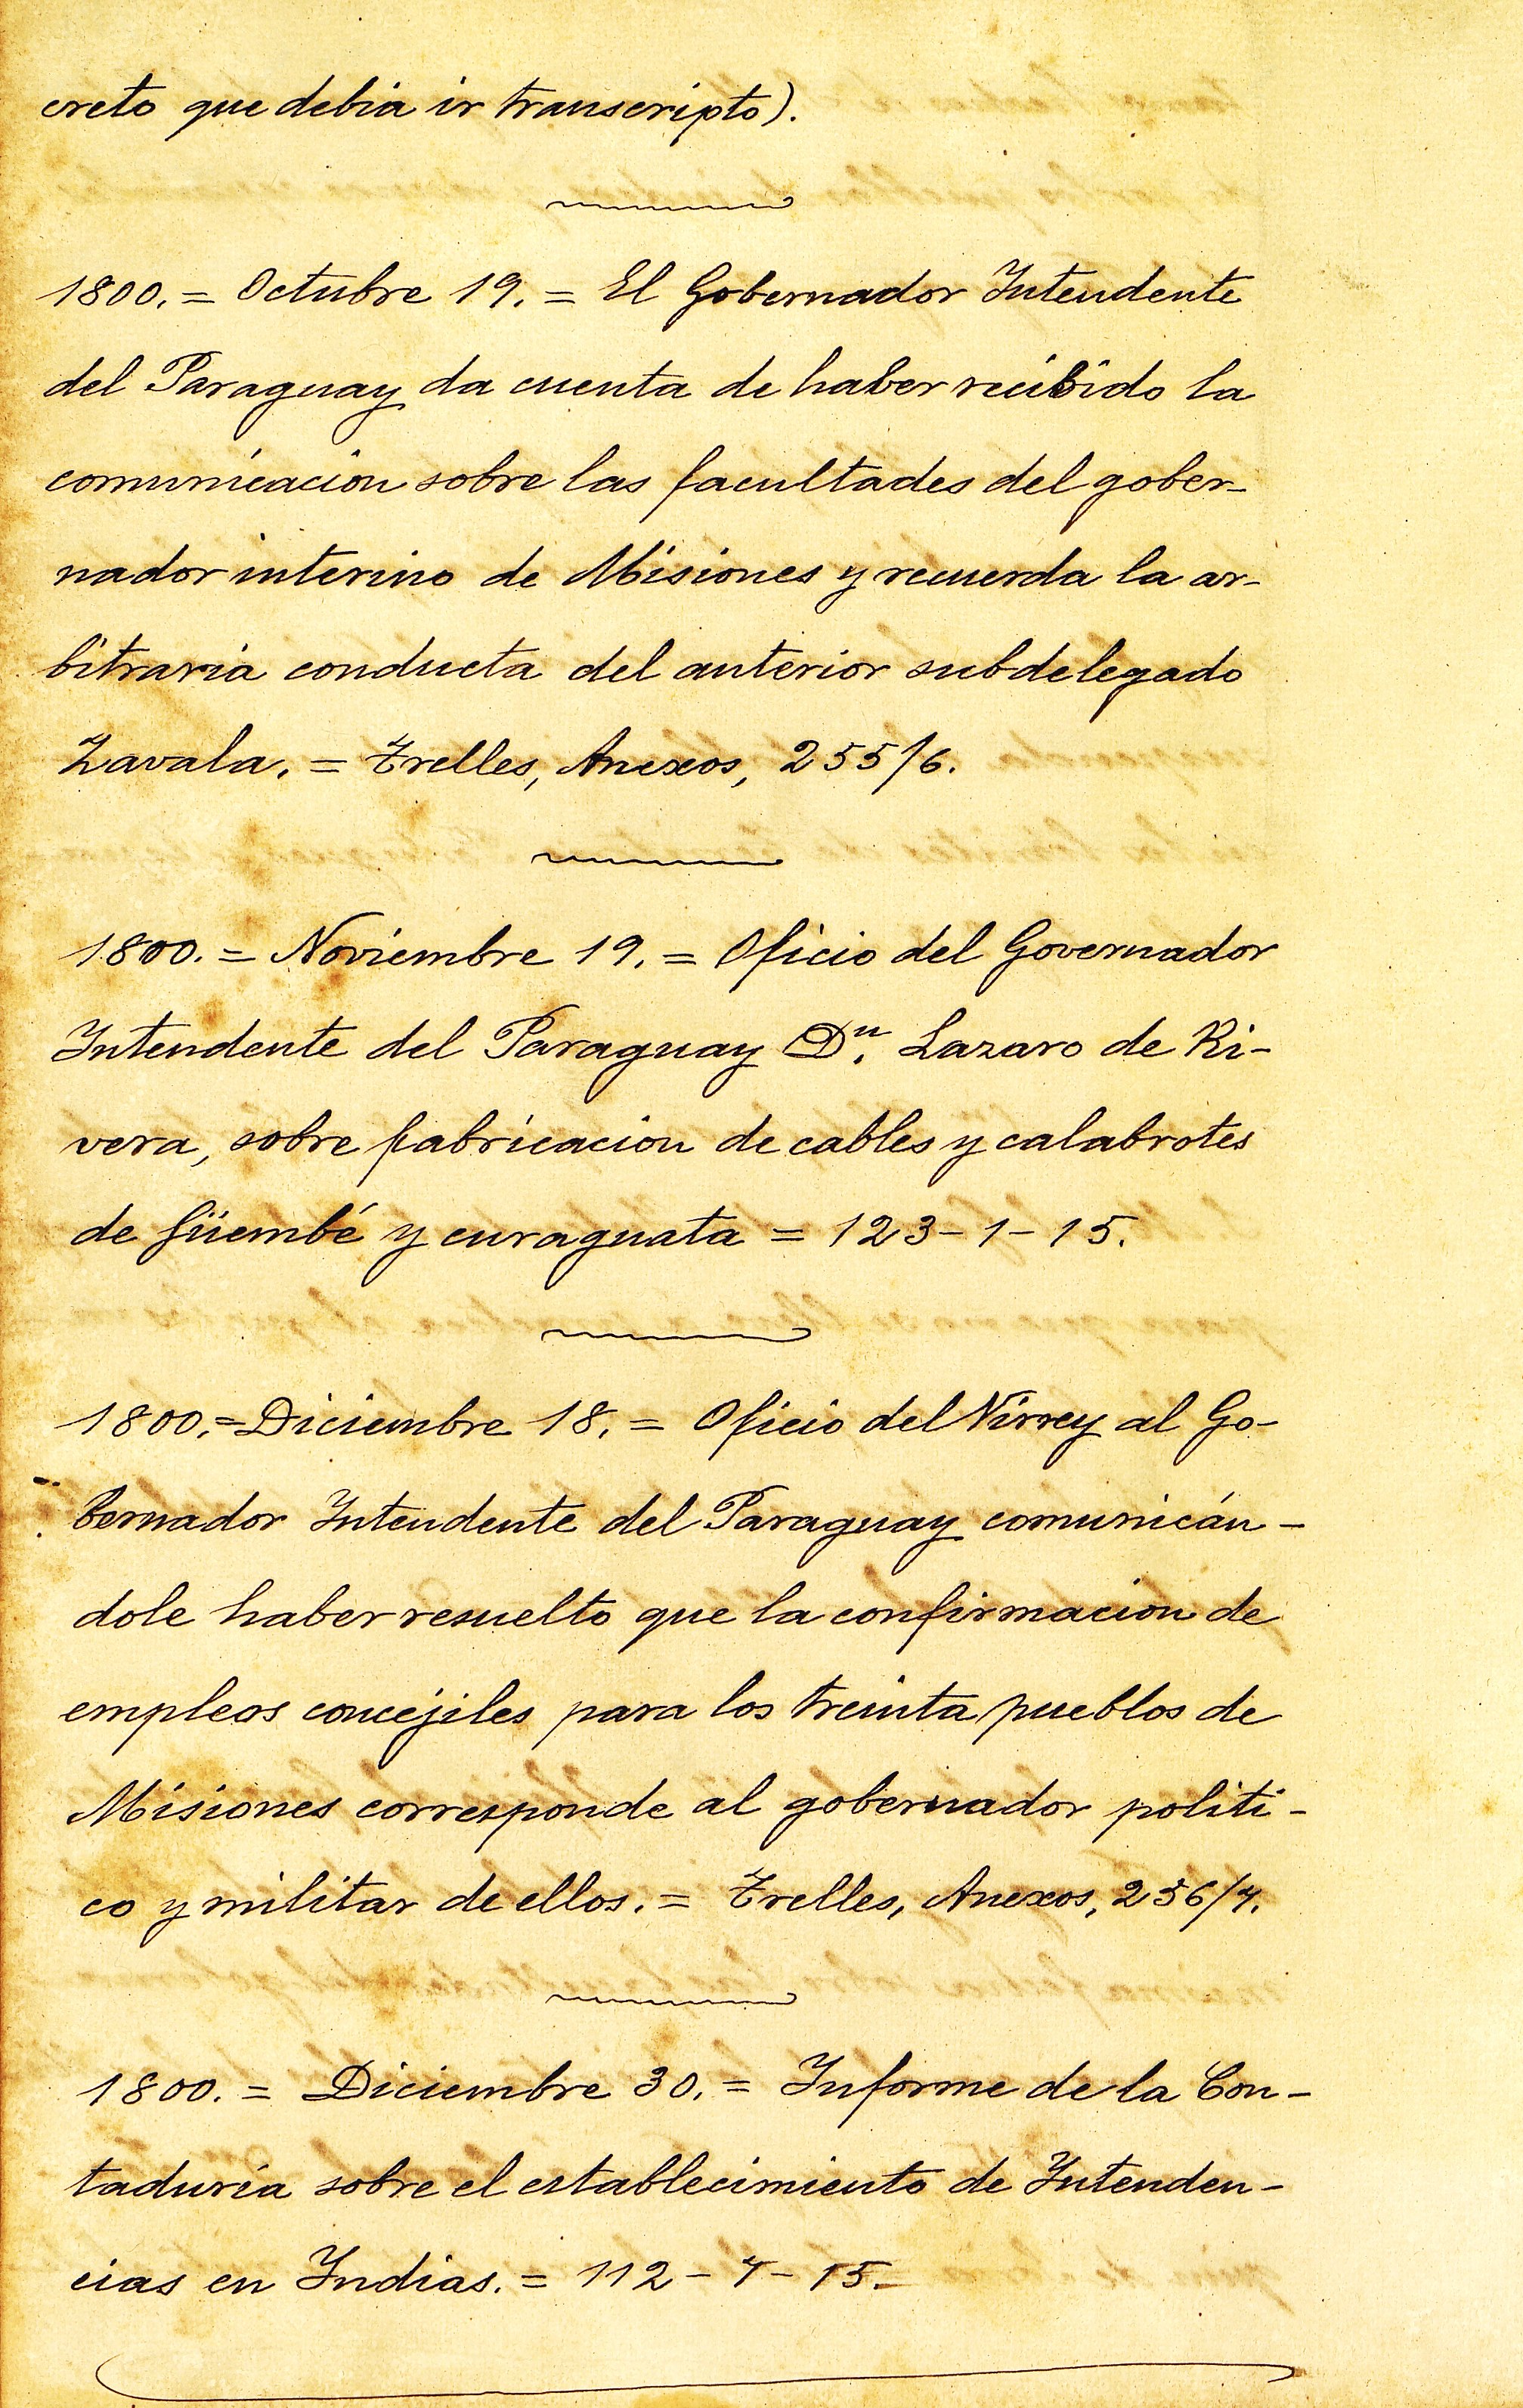 creto que debia ir transcripto).
1800. = Octubre 19. = El Gobernador Intendente
del Paraguay da cuenta de haber recibido la
comunicacion sobre las facultades del gober-
nador interino de Misiones y recuerda la ar-
bitraria conducta del anterior subdelegado
Zavala. = Trelles, Anexos, 255/6.
1800. = Noviembre 19. = Oficio del Governador
Intendente del Paraguay Dn. Lazaro de Ri-
vera, sobre fabricacion de cables y calabrotes
de güembé y curaguata = 123-1-15.
1800. = Diciembre 18. = Oficio del Virrey al Go-
bernador Intendente del Paraguay comunicán-
dole haber resuelto que la confirmacion de
empleos concejiles para los treinta pueblos de
Misiones corresponde al gobernador politi-
co y militar de ellos. = Trelles, Anexos, 256/7.
1800. = Diciembre 30. = Informe de la Con-
taduria sobre el establecimiento de Intenden-
cias en Indias. = 112-7-15.